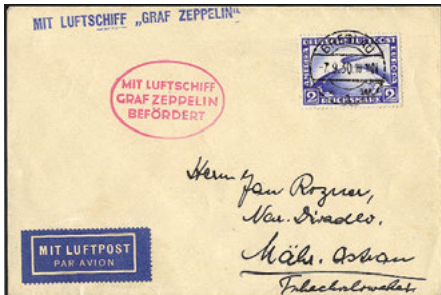 MIT LUFTSCHIFF „GRAF ZEPPELIN“
MIT LUFTSCHIFF
GRAF ZEPPELIN
BEFÖRDERT
-7.9.30
2
REICHSMARK
2
Herrn Jan Rozner,
Nar. Divadlo,
Mähr. Ostrau
Tschechoslowakei
MIT LUFTPOST
PAR AVION